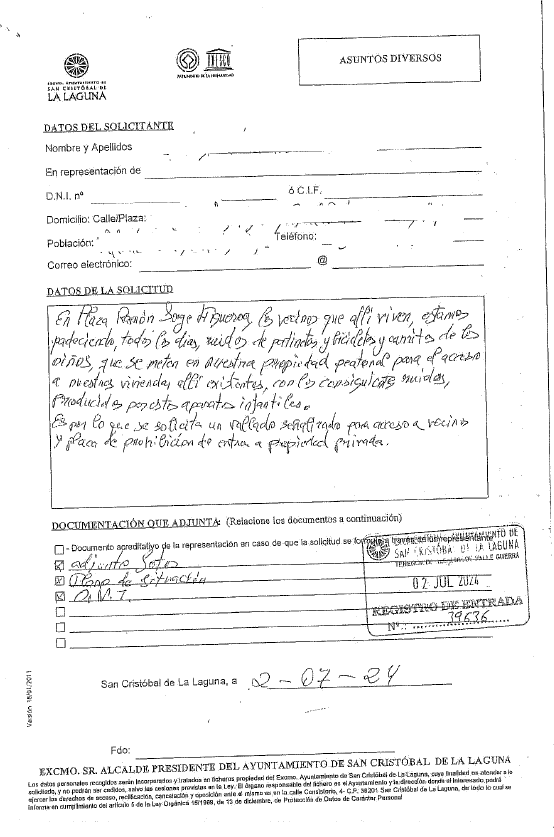 ASUNTOS DIVERSOS
EXCMO. AYUNTAMIENTO DE
SAN CRISTÓBAL DE
LA LAGUNA
UNESCO
PATRIMONIO DE LA HUMANIDAD
DATOS DEL SOLICITANTE
Nombre y Apellidos
En representación de
D.N.I. nº
ó C.I.F.
Domicilio: Calle/Plaza:
Población:
Teléfono:
Correo electrónico:
@
DATOS DE LA SOLICITUD
En Plaza Ramón Jorge los vecinos que alli viven, estamos
padeciendo, todos los dias, ruidos de patinetes y bicicletas y carritos de los
niños, que se meten en nuestra propiedad peatonal para el acceso
a nuestras viviendas allí existentes, con los consiguientes ruidos,
producidos por estos aparatos infantiles.
Es por lo que se solicita un vallado señalizado para acceso a vecinos
y placa de prohibición de entrar a propiedad privada.
DOCUMENTACIÓN QUE ADJUNTA: (Relacione los documentos a continuación)
- Documento acreditativo de la representación en caso de que la solicitud se formule a través de un representante
adjunto Fotos
Plano de Situación
D.N.I.
AYUNTAMIENTO DE
SAN CRISTÓBAL DE LA LAGUNA
TENENCIA DE VALLE GUERRA
02 JUL 2024
REGISTRO DE ENTRADA
Nº.: 39636
San Cristóbal de La Laguna, a 2-07-24
Fdo:
EXCMO. SR. ALCALDE PRESIDENTE DEL AYUNTAMIENTO DE SAN CRISTÓBAL DE LA LAGUNA
Los datos personales recogidos serán incorporados y tratados en ficheros propiedad del Excmo. Ayuntamiento de San Cristóbal de La Laguna, cuya finalidad es atender a lo
solicitado, y no podrán ser cedidos, salvo las cesiones previstas en la Ley. El órgano responsable del fichero es el Ayuntamiento y la dirección donde el interesado, podrá
ejercer los derechos de acceso, rectificación, cancelación y oposición ante el mismo es en la calle Consistorio, 4- C.P. 38201 San Cristóbal de La Laguna, de todo lo cual se
informa en cumplimiento del artículo 5 de la Ley Orgánica 15/1999, de 13 de diciembre, de Protección de Datos de Carácter Personal